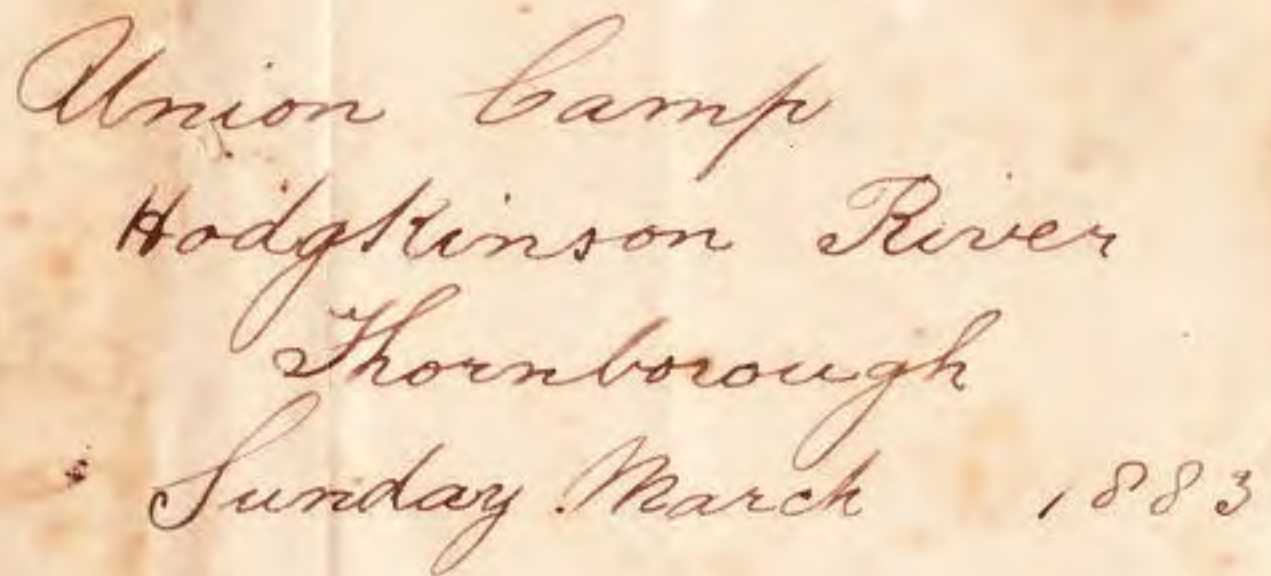 Union Camp
Hodgkinson River
Thornborough
Sunday March 1883